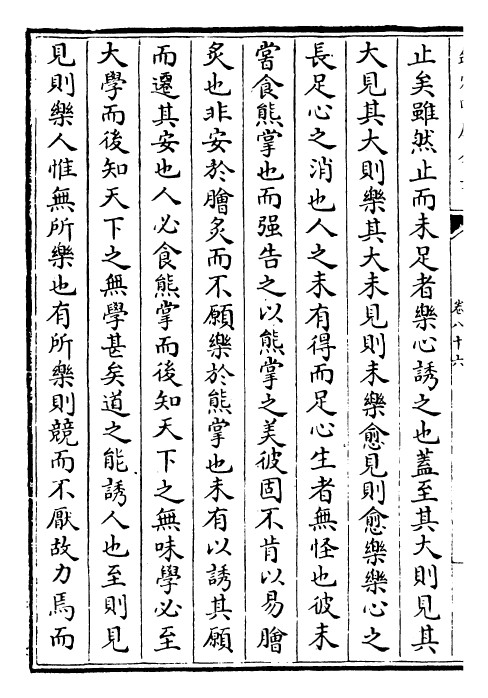 卷八十六
止矣雖然止而未足者樂心誘之也蓋至其大則見其
大見其大則樂其大未見則未樂愈見則愈樂樂心之
長足心之消也人之未有得而足心生者無怪也彼未
嘗食熊掌也而强告之以熊掌之美彼固不肯以易膾
炙也非安於膾炙而不願樂於熊掌也未有以誘其願
而遷其安也人必食熊掌而後知天下之無味學必至
大學而後知天下之無學甚矣道之能誘人也至則見
見則樂人惟無所樂也有所樂則競而不厭故力焉而